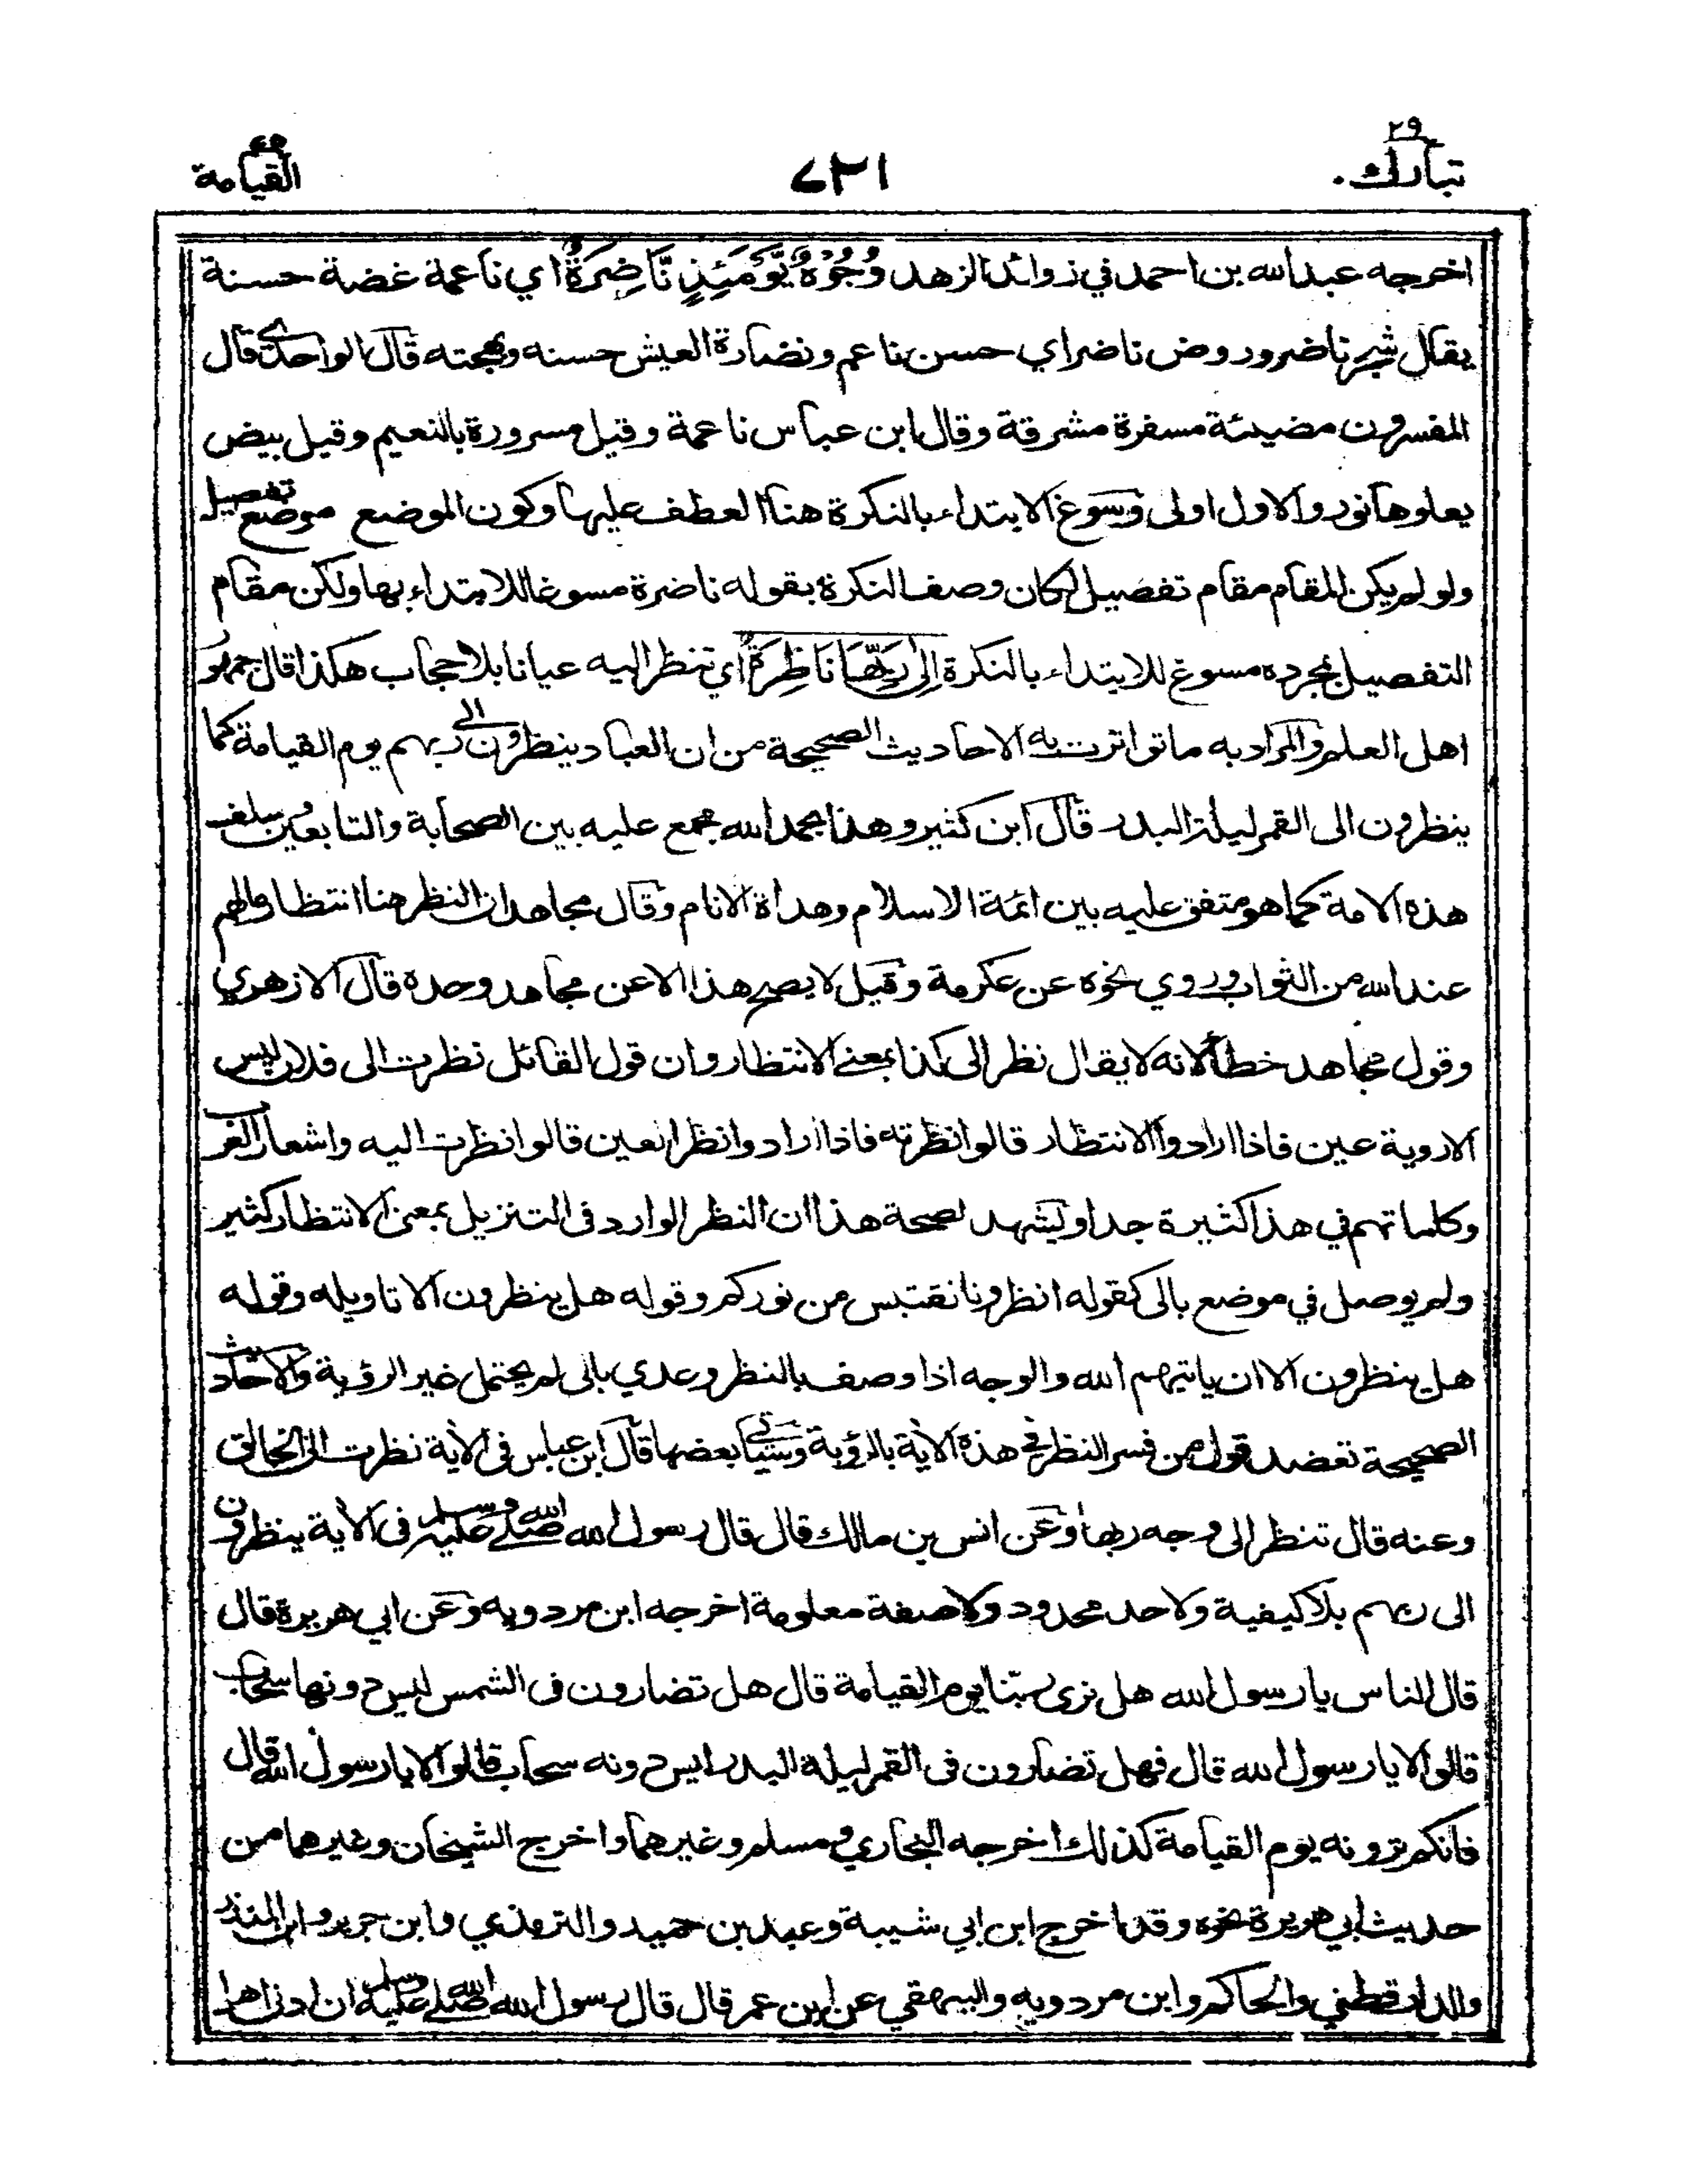 تبارك ٢٩
١٣٧
القيامة ٧٥
اخرجه عبدالله بن احمد في زوائد الزهد وُجُوهٌ يَّوْمَئِذٍ نَّاضِرَةٌ اي ناعمة غضة حسنة
يقال شجر ناضر وروض ناضر اي حسن ناعم ونضارة العيش حسنه وبهجته قال الواحدي قال
المفسرون مضيئة مسفرة مشرقة وقال ابن عباس ناعمة وقيل مسرورة بالنعيم وقيل بيض
يعلوها نور والاول اولى وسوغ الابتداء بالنكرة هنا العطف عليها وكون الموضع موضع تفصيل
ولو لم يكن المقام مقام تفصيل لكان وصف النكرة بقوله ناضرة مسوغا للابتداء بها ولكن مقام
التفصيل بمجرده مسوغ للابتداء بالنكرة اِلٰى رَبِّهَا نَاظِرَةٌ اي تنظر اليه عيانا بلا حجاب هكذا قال جمهور
اهل العلم والمراد به ما تواترت به الاحاديث الصحيحة من ان العباد ينظرون الى ربهم يوم القيامة كما
ينظرون الى القمر ليلة البدر قال ابن كثير وهذا بحمد الله مجمع عليه بين الصحابة والتابعين وسلف
هذه الامة كما هو متفق عليه بين ائمة الاسلام وهداة الانام وقال مجاهد ان النظر هنا انتظار ما لهم
عند الله من الثواب وروي نحوه عن عكرمة وقيل لا يصح هذا الا عن مجاهد وحده قال الازهري
وقول مجاهد خطأ لانه لا يقال نظر الى كذا بمعنى الانتظار وان قول القائل نظرت الى فلان ليس
الا روية عين فاذا ارادوا الانتظار قالوا نظرته فاذا ارادوا نظر العين قالوا نظرت اليه واشعار العرب
وكلماتهم في هذا كثيرة جدا ويشهد لصحة هذا ان النظر الوارد في التنزيل بمعنى الانتظار كثير
ولم يوصل في موضع بالى كقوله انظرونا نقتبس من نوركم وقوله هل ينظرون الا تاويله وقوله
هل ينظرون الا ان ياتيهم الله والوجه اذا وصف بالنظر وعدي بالى لم يحتمل غير الرؤية والاحاديث
الصحيحة تعضد قول من فسر النظر في هذه الاية بالرؤية وسياتي بعضها قال ابن عباس في الاية نظرت الى الخالق
وعنه قال تنظر الى وجه ربها وعن انس بن مالك قال قال رسول الله صلى الله عليه وسلم في الاية ينظرون
الى ربهم بلا كيفية ولا حد محدود ولا صفة معلومة اخرجه ابن مردويه وعن ابي هريرة قال
قال الناس يا رسول الله هل نرى ربنا يوم القيامة قال هل تضارون في الشمس ليس دونها سحاب
قالوا لا يا رسول الله قال فهل تضارون في القمر ليلة البدر ليس دونه سحاب قالوا لا يا رسول الله قال
فانكم ترونه يوم القيامة كذلك اخرجه البخاري ومسلم وغيرهما واخرج الشيخان وغيرهما من
حديث ابي هريرة نحوه وقد اخرج ابن ابي شيبة وعبد بن حميد والترمذي وابن جرير وابن المنذر
والدارقطني والحاكم وابن مردويه والبيهقي عن ابن عمر قال قال رسول الله صلى الله عليه وسلم ان ادنى اهل